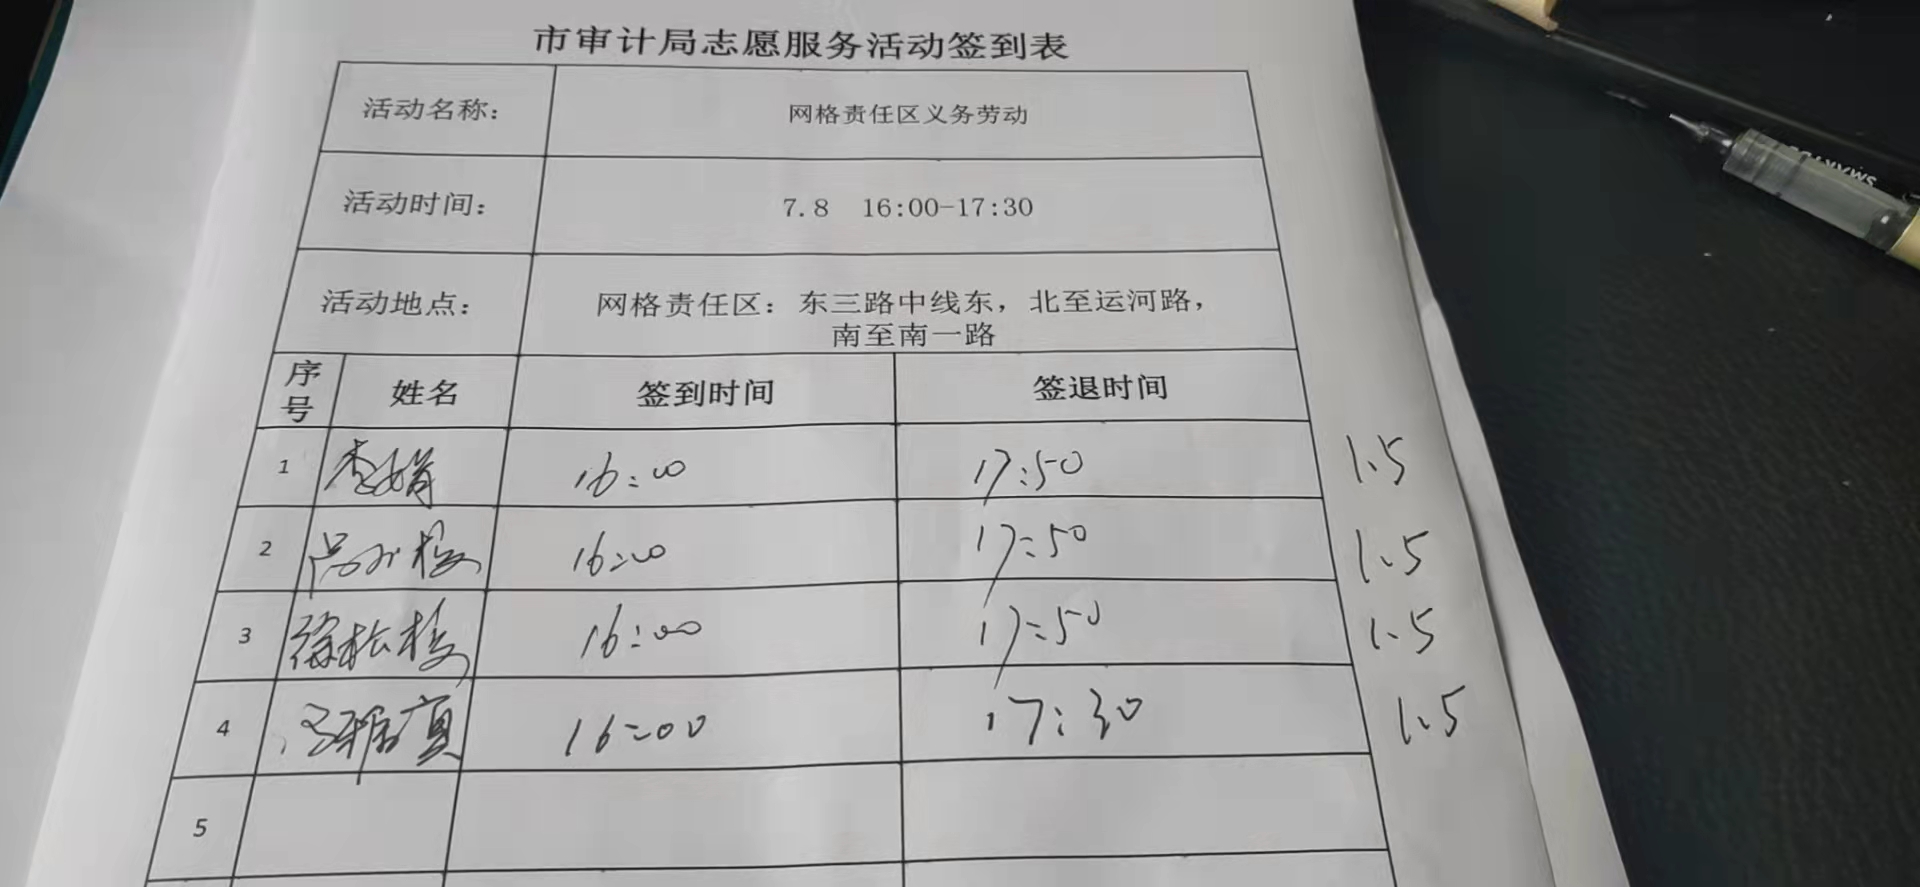 市审计局志愿服务活动签到表
活动名称: 网格责任区义务劳动
活动时间: 7.8 16:00-17:30
活动地点: 网格责任区: 东三路中线东, 北至运河路,
南至南一路
序号 姓名 签到时间 签退时间
1 李娟 16:00 17:50 1.5
2 16:00 17:50 1.5
3 徐松梅 16:00 17:50 1.5
4 16:00 17:30 1.5
5